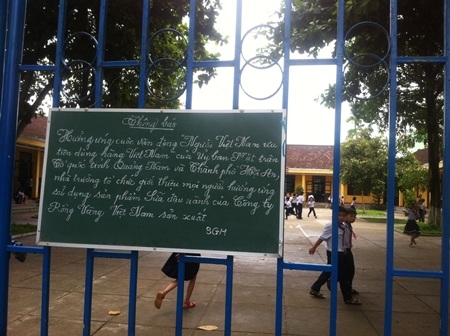 Thông báo
Hưởng ứng cuộc vận động "Người Việt Nam ưu
tiên dùng hàng Việt Nam" của Uỷ ban Mặt trận
Tổ quốc tỉnh Quảng Nam và Thành phố Hội An,
nhà trường tổ chức giới thiệu mọi người hưởng ứng
sử dụng sản phẩm Sữa đậu xanh của Công ty
Rồng Vàng Việt Nam sản xuất
BGH